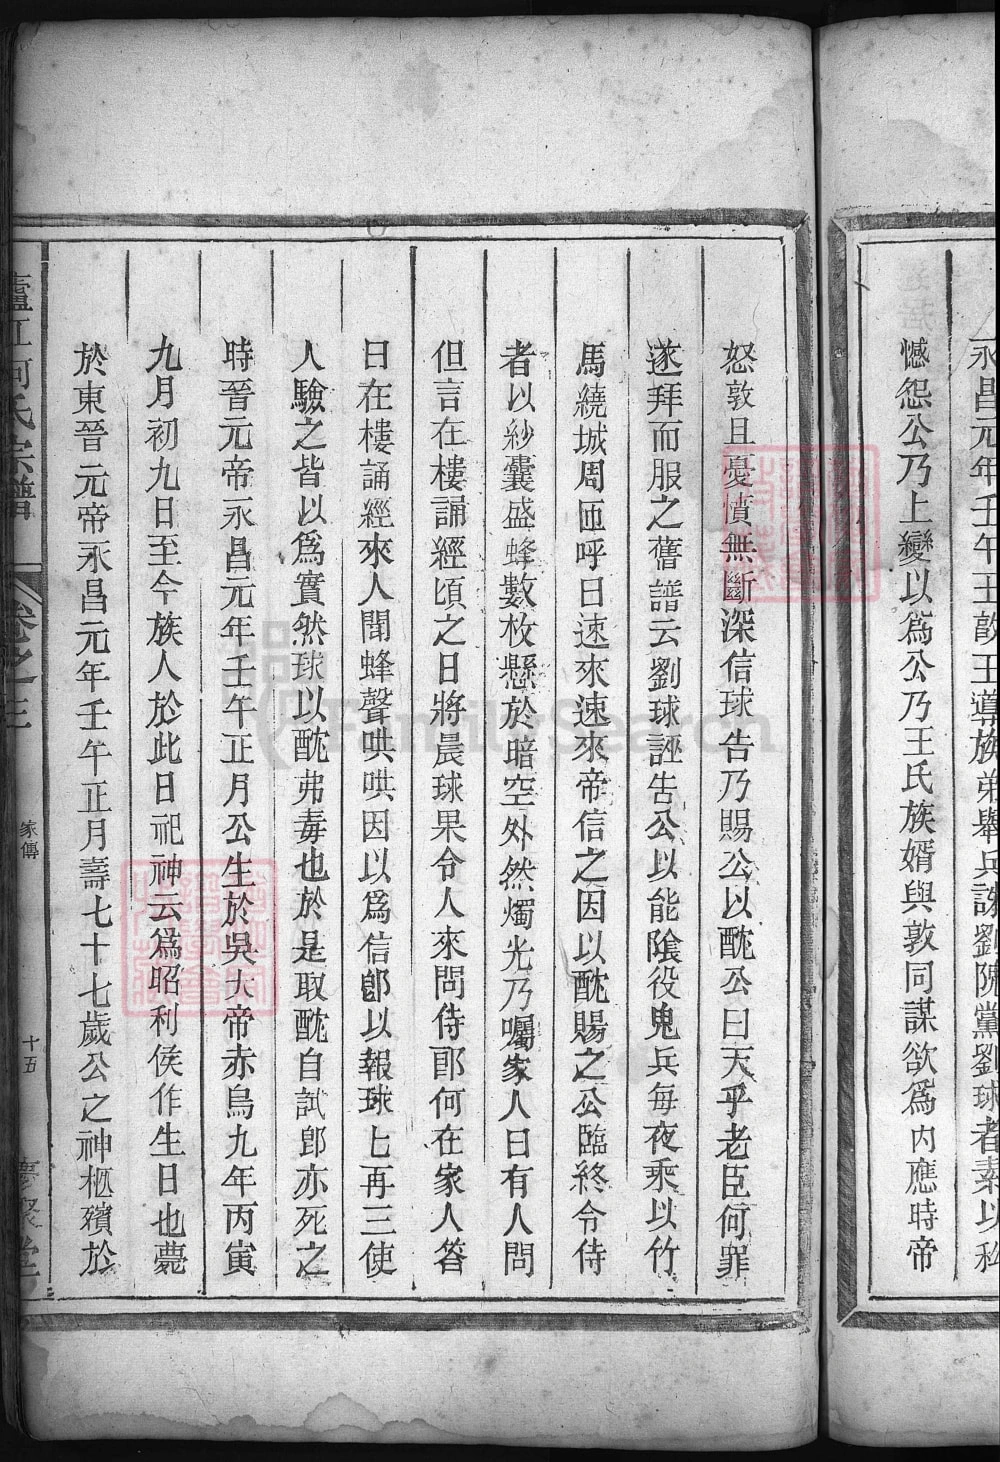 永昌元年壬午王敦王導族弟舉兵誅劉隗黨劉球者素以私
憾怨公乃上變以為公乃王氏族婿與敦同謀欲為內應時帝
怒敦且憂憤無斷深信球告乃賜公以酖公曰天乎老臣何罪
遂拜而服之舊譜云劉球誣告公以能陰役鬼兵每夜乘以竹
馬繞城周匝呼曰速來速來帝信之因以酖賜之公臨終令侍
者以紗囊盛蜂數枚懸於暗空外然燭光乃囑家人曰有人問
但言在樓誦經頃之日將晨球果令人來問侍郎何在家人答
曰在樓誦經來人聞蜂聲哄哄因以為信卽以報球七再三使
人驗之皆以為實然球以酖弗毒也於是取酖自試郎亦死之
時晉元帝永昌元年壬午正月公生於吳大帝赤烏九年丙寅
九月初九日至今族人於此日祀神云為昭利侯作生日也薨
於東晉元帝永昌元年壬午正月壽七十七歲公之神柩殯於
廬江何氏宗譜 卷之三 家傳 十五 慶聚堂
FamilySearch